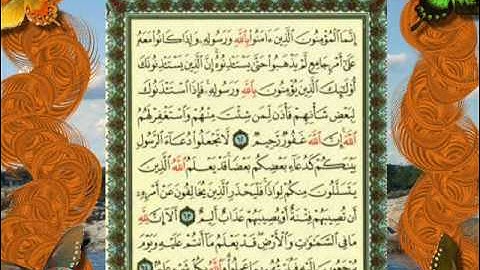 إِنَّمَا ٱلْمُؤْمِنُونَ ٱلَّذِينَ ءَامَنُوا۟ بِٱللَّهِ وَرَسُولِهِۦ وَإِذَا كَانُوا۟ مَعَهُۥ
عَلَىٰٓ أَمْرٍ جَامِعٍ لَّمْ يَذْهَبُوا۟ حَتَّىٰ يَسْتَـْٔذِنُوهُ إِنَّ ٱلَّذِينَ يَسْتَـْٔذِنُونَكَ
أُو۟لَـٰٓئِكَ ٱلَّذِينَ يُؤْمِنُونَ بِٱللَّهِ وَرَسُولِهِۦ فَإِذَا ٱسْتَـْٔذَنُوكَ
لِبَعْضِ شَأْنِهِمْ فَأْذَن لِّمَن شِئْتَ مِنْهُمْ وَٱسْتَغْفِرْ لَهُمُ
ٱللَّهَ إِنَّ ٱللَّهَ غَفُورٌ رَّحِيمٌ ٦٢ لَّا تَجْعَلُوا۟ دُعَآءَ ٱلرَّسُولِ
بَيْنَكُمْ كَدُعَآءِ بَعْضِكُم بَعْضًا قَدْ يَعْلَمُ ٱللَّهُ ٱلَّذِينَ
يَتَسَلَّلُونَ مِنكُمْ لِوَاذًا فَلْيَحْذَرِ ٱلَّذِينَ يُخَالِفُونَ عَنْ أَمْرِهِۦٓ
أَن تُصِيبَهُمْ فِتْنَةٌ أَوْ يُصِيبَهُمْ عَذَابٌ أَلِيمٌ ٦٣ أَلَآ إِنَّ لِلَّهِ
مَا فِى ٱلسَّمَـٰوَٰتِ وَٱلْأَرْضِ قَدْ يَعْلَمُ مَآ أَنتُمْ عَلَيْهِ وَيَوْمَ
يُرْجَعُونَ إِلَيْهِ فَيُنَبِّئُهُم بِمَا عَمِلُوا۟ وَٱللَّهُ بِكُلِّ شَىْءٍ عَلِيمٌ